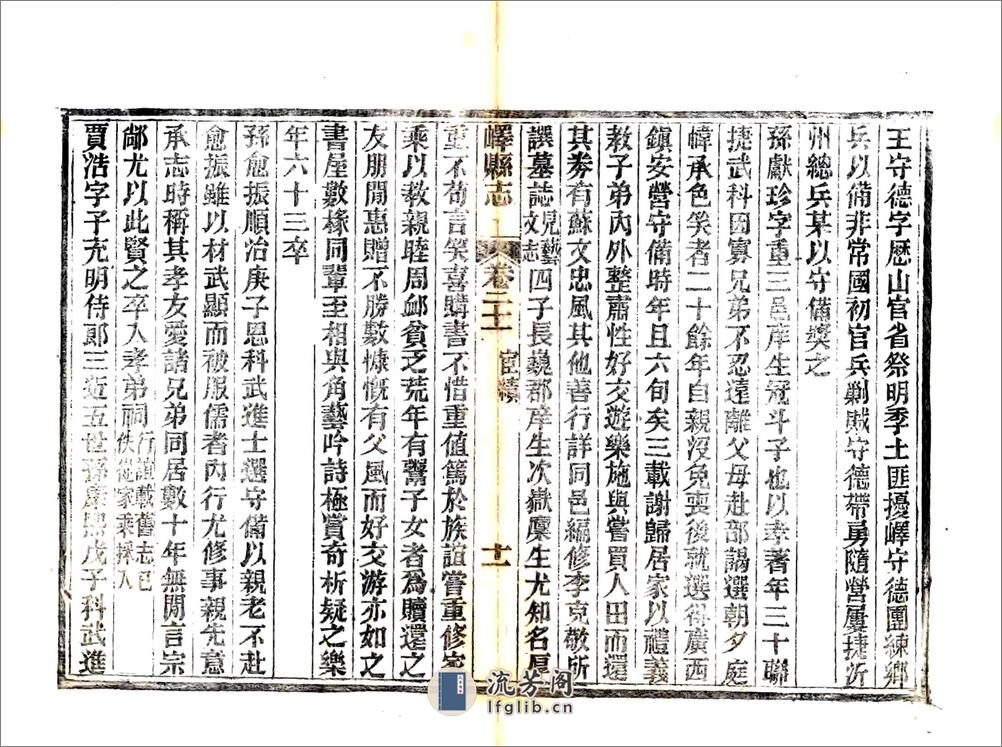 王守德字歷山官省祭明季土匪擾嶧守德團練鄉
兵以備非常國初官兵剿賊守德帶勇隨營屢捷沂
州總兵某以守備獎之
孫獻珍字重三邑庠生冠斗子也以孝著年三十聯
捷武科因寡兄弟不忍遠離父母赴部謁選朝夕庭
幃承色笑者二十餘年自親沒免喪後就選得廣西
鎮安營守備時年且六旬矣三載謝歸居家以禮義
教子弟內外整肅性好交遊樂施與嘗買人田而還
其券有蘇文忠風其他善行詳同邑編修李克敬所
譔墓誌見藝文志四子長巍郡庠生次嶽廩生尤知名厚
嶧縣志 卷二十一 宦績 十二
重不苟言笑喜購書不惜重值篤於族誼嘗重修家
乘以教親睦周卹貧乏荒年有鬻子女者為贖還之
友朋閒惠贈不勝數慷慨有父風而好交游亦如之
書屋數椽同輩至相與角藝吟詩極賞奇析疑之樂
年六十三卒
孫愈振順治庚子恩科武進士選守備以親老不赴
愈振雖以材武顯而被服儒者內行尤修事親先意
承志時稱其孝友愛諸兄弟同居數十年無閒言宗
鄰尤以此賢之卒入孝弟祠行誼載舊志已佚從家乘採入
賈浩字子充明侍郎三近五世孫康熙戊子科武進
流芳阁
lfglib.cn